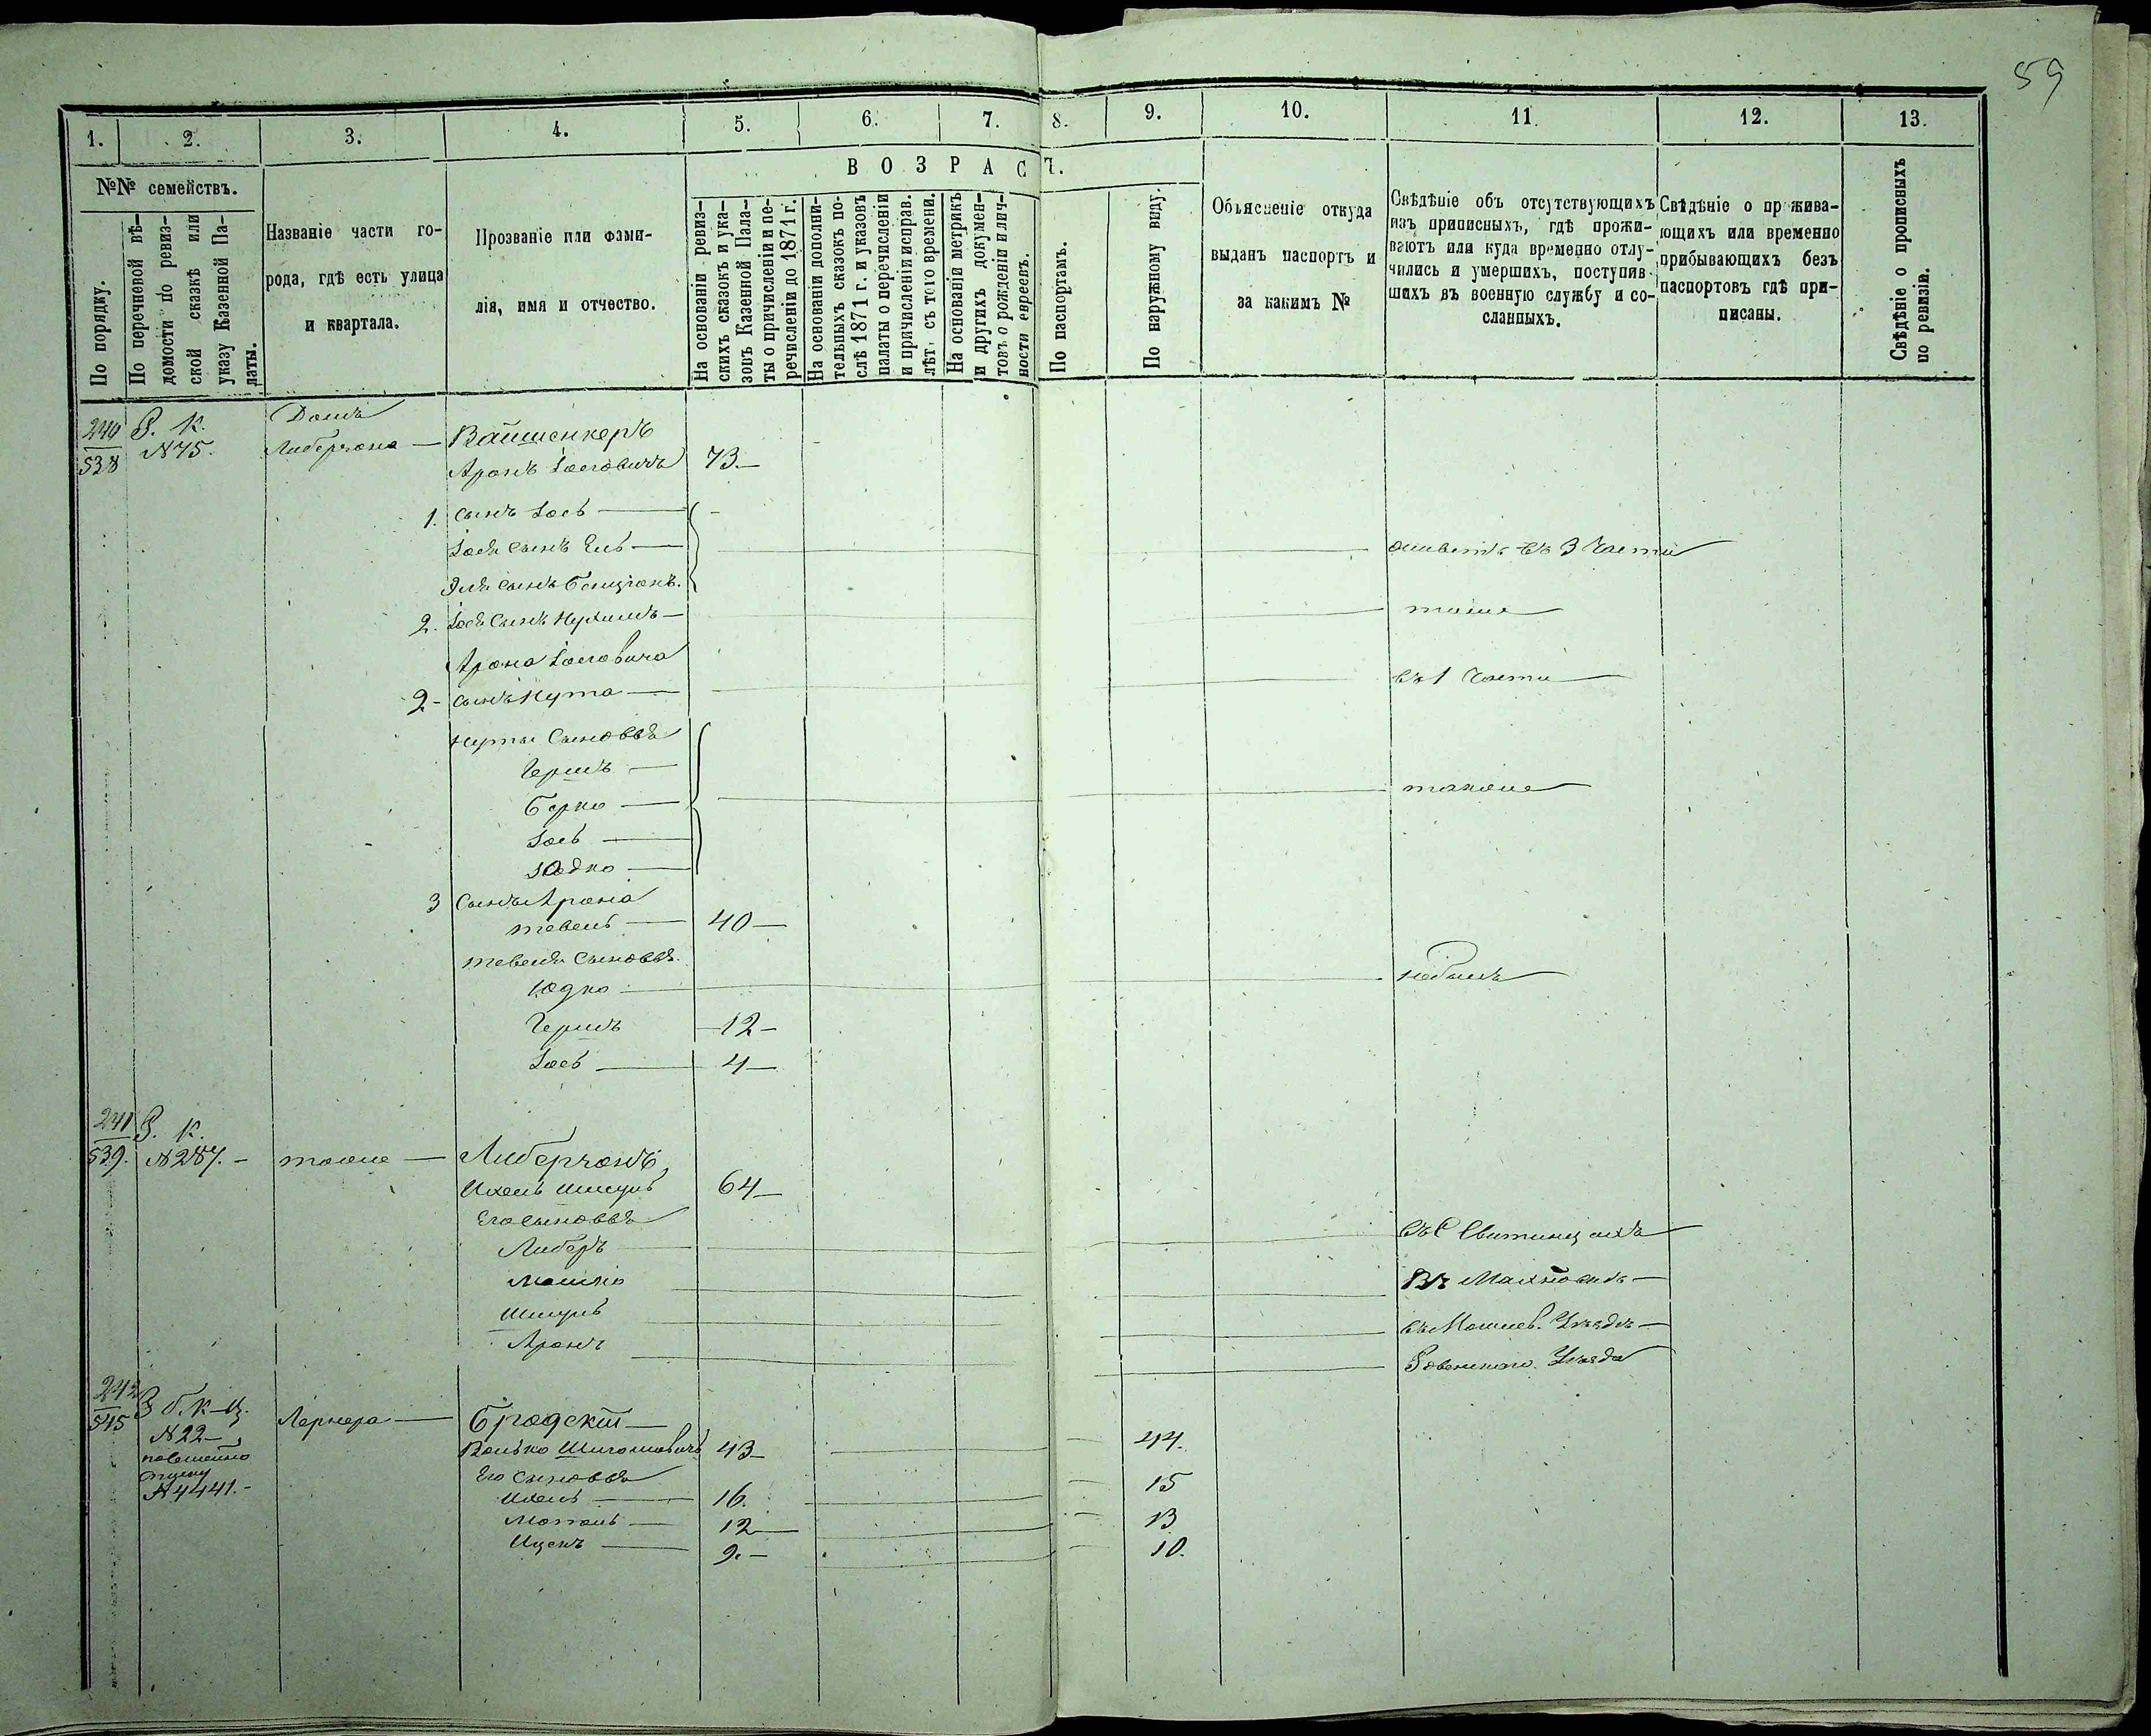 59
1. 2. 3. 4. 5. 6. 7. 8. 9. 10. 11. 12. 13.
№№ семействъ.
По порядку.
По перечневой вѣ-
домости по ревиз-
ской сказкѣ или
указу Казенной Па-
латы.
Названіе части го-
рода, гдѣ есть улица
и квартала.
Прозваніе или фами-
лія, имя и отчество.
ВОЗРАСТ.
На основаніи ревиз-
скихъ сказокъ и ука-
зовъ Казенной Пала-
ты о причисленіи и пе-
речисленіи до 1871 г.
На основаніи дополни-
тельныхъ сказокъ по-
слѣ 1871 г. и указовъ
палаты о перечисленіи
и причисленіи исправ.
лѣт. съ того времени.
На основаніи метрикъ
и другихъ докумен-
товъ о рожденіи и лич-
ности евреевъ.
По паспортамъ.
По наружному виду.
Объясненіе откуда
выданъ паспортъ и
за какимъ №
Свѣдѣніе объ отсутствующихъ
изъ приписныхъ, гдѣ прожи-
ваютъ или куда временно отлу-
чились и умершихъ, поступив-
шихъ въ военную службу и со-
сланныхъ.
Свѣдѣніе о прожива-
ющихъ или временно
прибывающихъ безъ
паспортовъ гдѣ при-
писаны.
Свѣдѣніе о прописныхъ
по ревизіи.
240
538
Р. К.
№75.
Домъ
Либерзона —
Вайшенкеръ
Аронъ Іосговичъ 73.—
1. сынъ Іось — -
Іося сынъ Ель — живетъ въ 3 части
Эля сынъ Бенціонъ.
2. Іося сынъ Нухимъ — тоже
Арона Іосговича
2- сынъ Нута — въ 1 части
Нуты сыновья
Гершъ —
Берко — также
Іось —
Юдко —
3 сынъ Арона
Тевель — 40 —
Тевеля сыновья.
Юдко —
Гершъ —12—
Іось — 4—
241
539.
Р. К.
№287.-
тоже —
Либерзонъ
Ихель Шмуль 64—
Его сыновья
Либеръ
Мошко
Шмуль
Аронъ
Ровенскаго уѣзда
242
545
№22—
№4441.-
Лернера —
Бродскій —
Волько 43— 44.
Его сыновья
Ихель — 16. 15
Мотель — 12— 13
Ицекъ — 9.— 10.